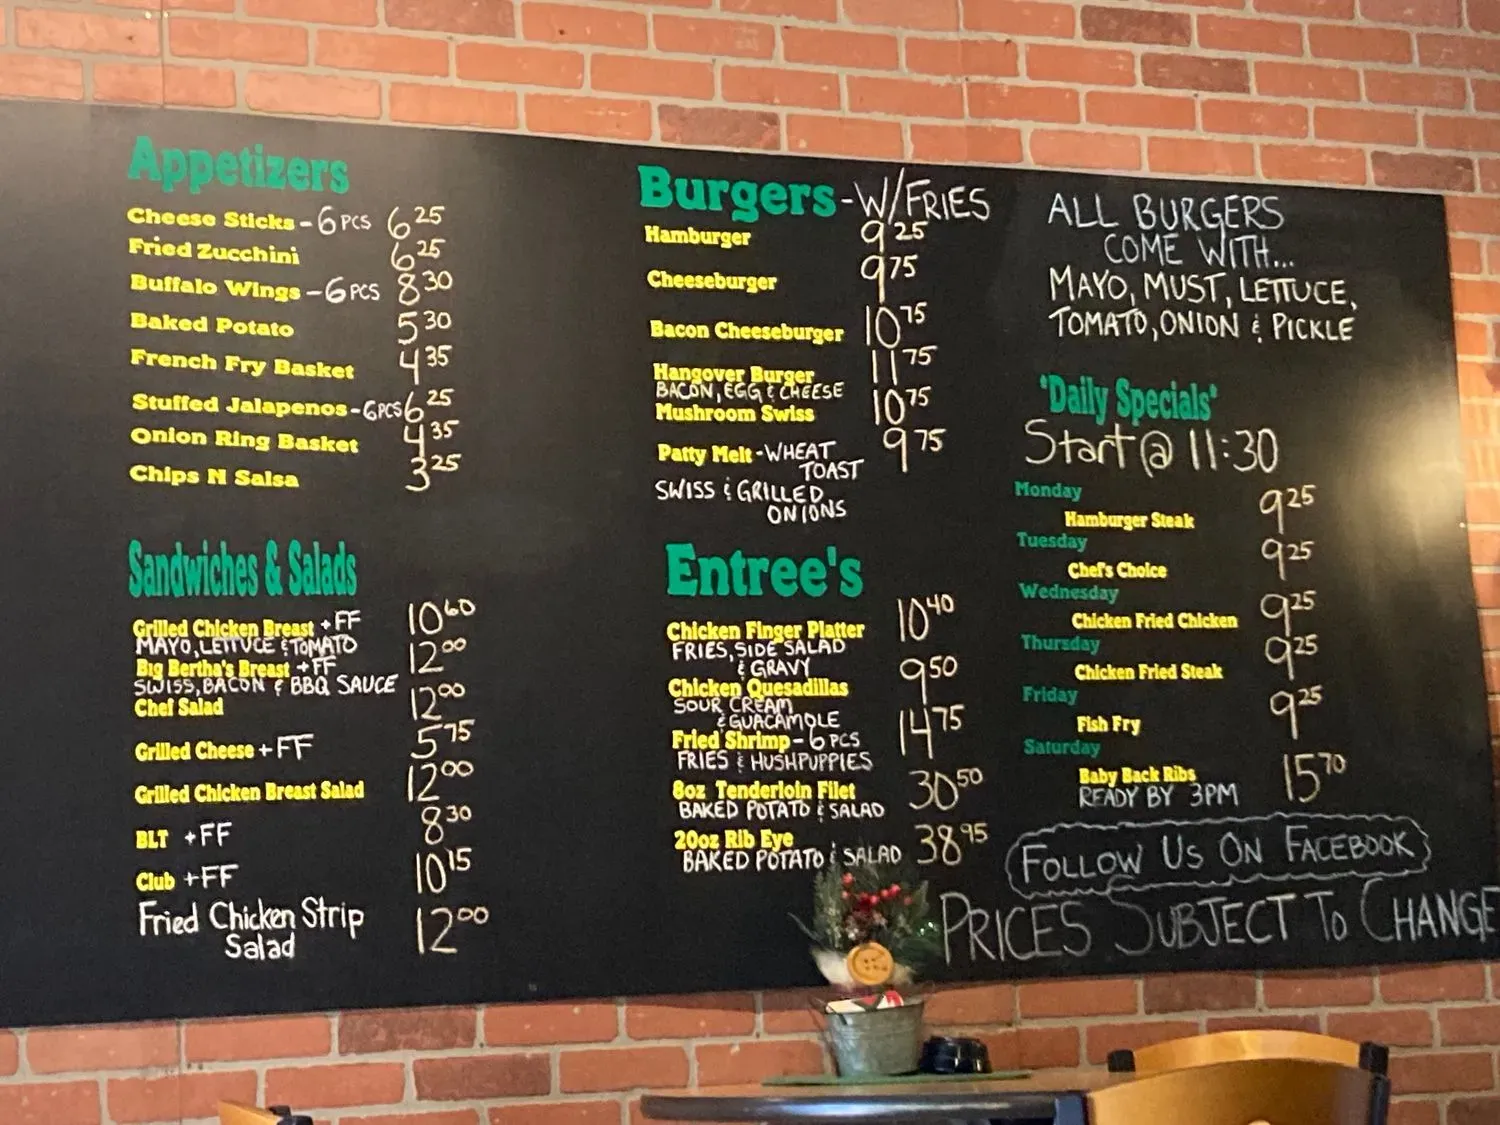 Appetizers
Cheese Sticks - 6 PCS 6 25
Fried Zucchini 6 25
Buffalo Wings - 6 PCS 8 30
Baked Potato 5 30
French Fry Basket 4 35
Stuffed Jalapenos - 6 PCS 6 25
Onion Ring Basket 4 35
Chips N Salsa 3 25
Sandwiches & Salads
Grilled Chicken Breast + FF 10 60
MAYO, LETTUCE & TOMATO
Big Bertha's Breast + FF 12 00
SWISS, BACON & BBQ SAUCE
Chef Salad 12 00
Grilled Cheese + FF 5 75
Grilled Chicken Breast Salad 12 00
BLT + FF 8 30
Club + FF 10 15
Fried Chicken Strip 12 00
Salad
Burgers - W/FRIES
Hamburger 9 25
Cheeseburger 9 75
Bacon Cheeseburger 10 75
Hangover Burger 11 75
BACON, EGG & CHEESE
Mushroom Swiss 10 75
Patty Melt - WHEAT 9 75
TOAST
SWISS & GRILLED
ONIONS
Entree's
Chicken Finger Platter 10 40
FRIES, SIDE SALAD
& GRAVY
Chicken Quesadillas 9 50
SOUR CREAM
& GUACAMOLE
Fried Shrimp - 6 PCS 14 75
FRIES & HUSHPUPPIES
8oz Tenderloin Filet 30 50
BAKED POTATO & SALAD
20oz Rib Eye 38 95
BAKED POTATO & SALAD
ALL BURGERS
COME WITH...
MAYO, MUST, LETTUCE,
TOMATO, ONION & PICKLE
'Daily Specials'
Start @ 11:30
Monday
Hamburger Steak 9 25
Tuesday
Chef's Choice 9 25
Wednesday
Chicken Fried Chicken 9 25
Thursday
Chicken Fried Steak 9 25
Friday
Fish Fry 9 25
Saturday
Baby Back Ribs 15 70
READY BY 3PM
FOLLOW US ON FACEBOOK
PRICES SUBJECT TO CHANGE